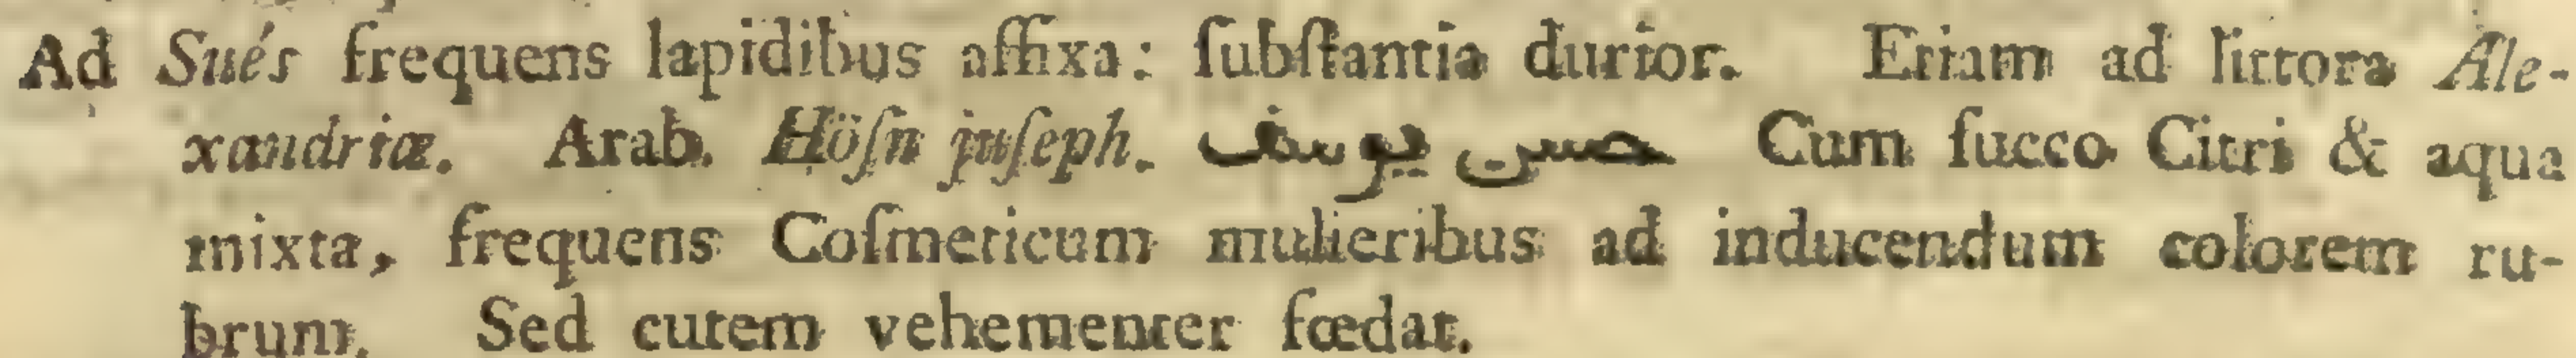 Ad Sués frequens lapidibus affixa: ſubſtantia durior. Etiam ad littora Ale-
xandriæ. Arab. Höſn juſeph. حسن يوسف Cum ſucco Citri & aqua
mixta, frequens Coſmeticum mulieribus ad inducendum colorem ru-
brum. Sed cutem vehementer fœdat.